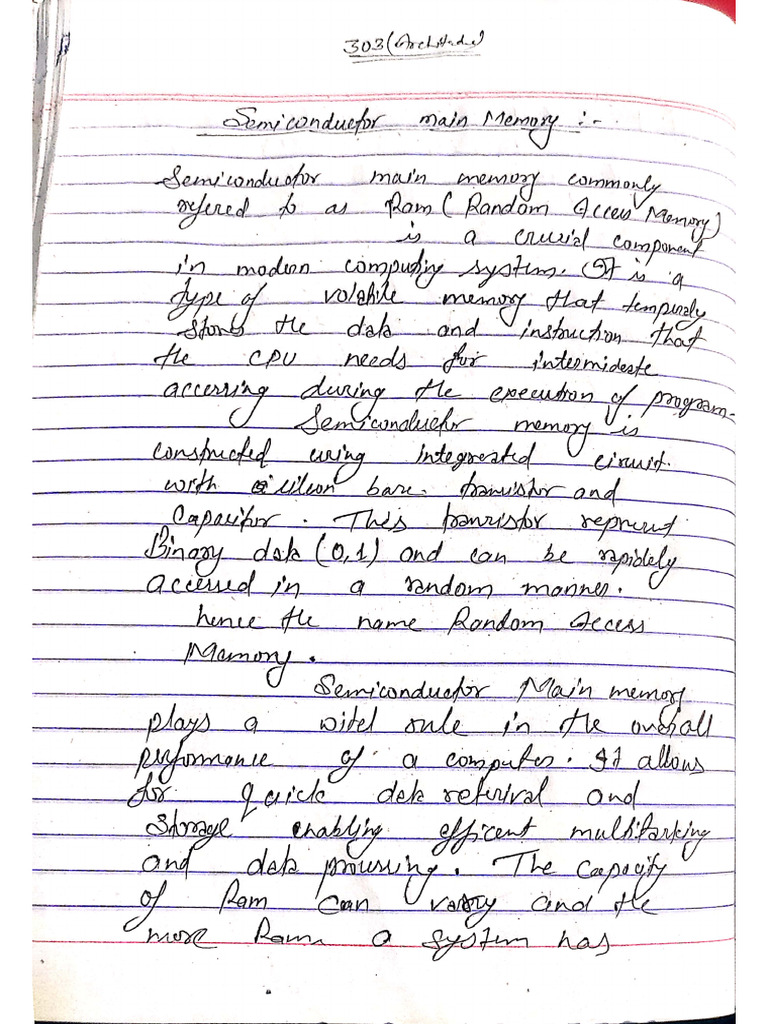 303 (Architecture)
Semiconductor main Memory :-
Semiconductor main memory commonly
refered to as Ram ( Random Access Memory)
is a crucial component
in modern computing system. It is a
type of volatile memory that temperely
stores the data and instruction that
the CPU needs for intermideate
accessing during the execution of program.
Semiconductor memory is
constructed using integreated circuit.
with silicon base transistor and
Capacitor. This transistor represent
Binary data (0,1) and can be rapidely
accessed in a random manner.
hence the name Random Access
Memory.
Semiconductor Main memory
plays a vitel rule in the overall
performance of a computer. It allows
for quick data reterival and
Storage enabling efficent multitasking
and data processing. The Capacity
of Ram can vary and the
more Ram a system has